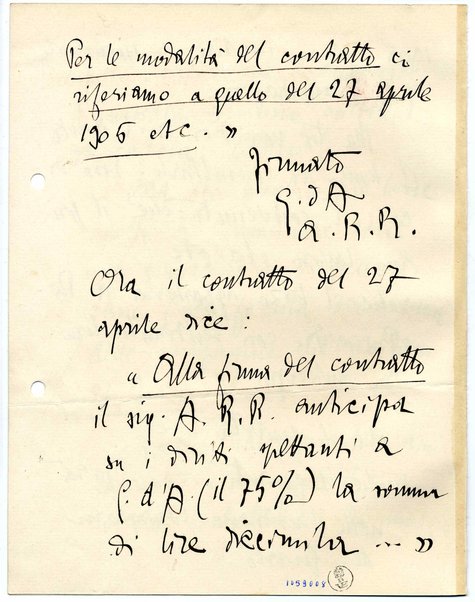 Per le modalità del contratto ci
riferiamo a quello del 27 aprile
1906 etc. »
firmato
G. d'A
A. R. R.
Ora il contratto del 27
aprile dice :
« Alla firma del contratto
il sig. A. R. R. anticipa
su i diritti spettanti a
G. d'A. (il 75%) la somma
di lire diecimila ... »
1059008